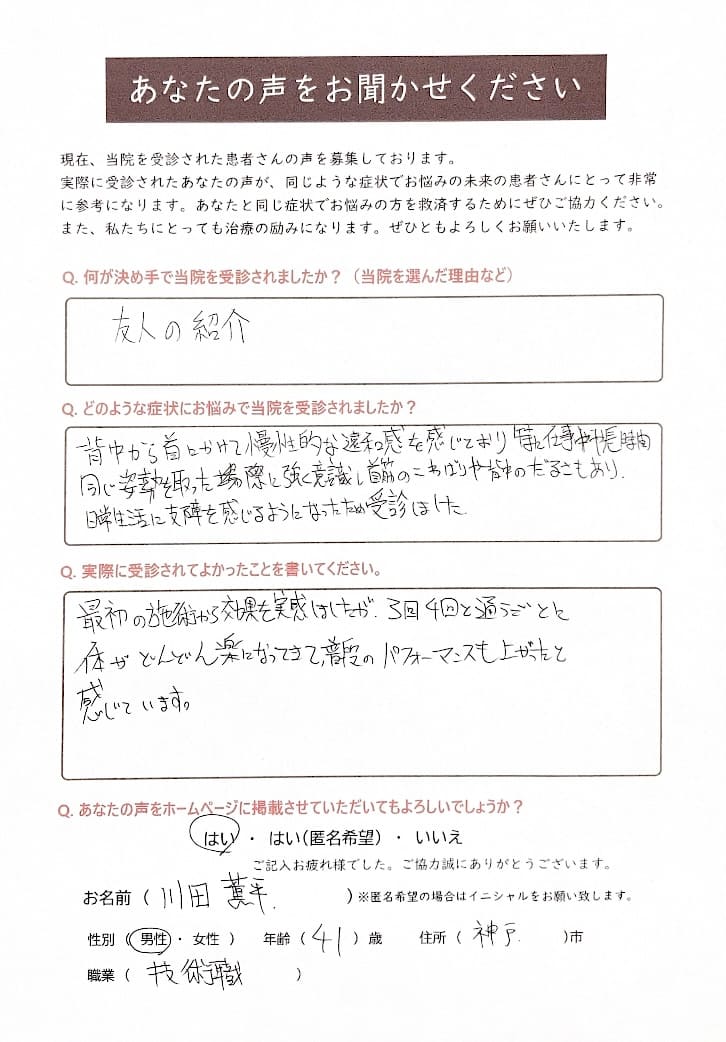 あなたの声をお聞かせください
現在、当院を受診された患者さんの声を募集しております。
実際に受診されたあなたの声が、同じような症状でお悩みの未来の患者さんにとって非常
に参考になります。あなたと同じ症状でお悩みの方を救済するためにぜひご協力ください。
また、私たちにとっても治療の励みになります。ぜひともよろしくお願いいたします。
Q. 何が決め手で当院を受診されましたか？（当院を選んだ理由など）
友人の紹介
Q. どのような症状にお悩みで当院を受診されましたか？
背中から首にかけて慢性的な違和感を感じており 特に仕事中や長時間
同じ姿勢を取った際に強く意識し首筋のこわばりや背中のだるさもあり、
日常生活に支障を感じるようになったため受診しました
Q. 実際に受診されてよかったことを書いてください。
最初の施術から効果を実感しましたが、3回4回と通うごとに
体がどんどん楽になってきて、普段のパフォーマンスも上がったと
感じています。
Q. あなたの声をホームページに掲載させていただいてもよろしいでしょうか？
はい ・ はい（匿名希望） ・ いいえ
ご記入お疲れ様でした。ご協力誠にありがとうございます。
お名前 （ 川田 平 ）※匿名希望の場合はイニシャルをお願い致します。
性別（ 男性 ・ 女性 ） 年齢（ 41 ）歳 住所（ 神戸 ）市
職業（ 技術職 ）